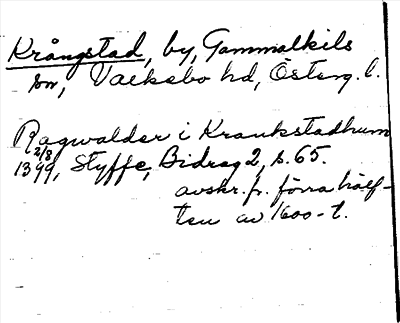 Krångstad, by, Gammalkils
sn, Valkebo hd, Österg. l.
Ragwalder i Kraukstadhum
2/8
1399, Styffe, Bidrag 2, s. 65.
avskr. fr. förra hälf-
ten av 1600-t.